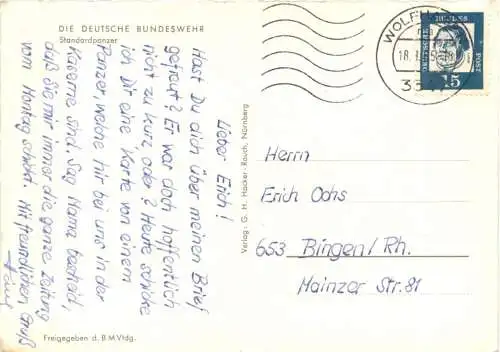 DIE DEUTSCHE BUNDESWEHR
Standardpanzer
Lieber Erich!
Hast Du dich über meinen Brief
gefreut? Er war doch hoffentlich
nicht zu kurz, oder? Heute schicke
ich Dir eine Karte von einem
Panzer, welche hir bei uns in der
Kaserne sind. Sag Mama bescheid,
daß Sie mir immer die ganze Zeitung
vom Montag schickt. Mit freundlichem Gruß
Freigegeben d. B.M.Vtdg.
Verlag: G. H. Hacker-Rauch, Nürnberg
WOLFH
18.
35
DEUTSCHE
BUNDES
POST
15
Herrn
Erich Ochs
653 Bingen/Rh.
Mainzer Str. 81